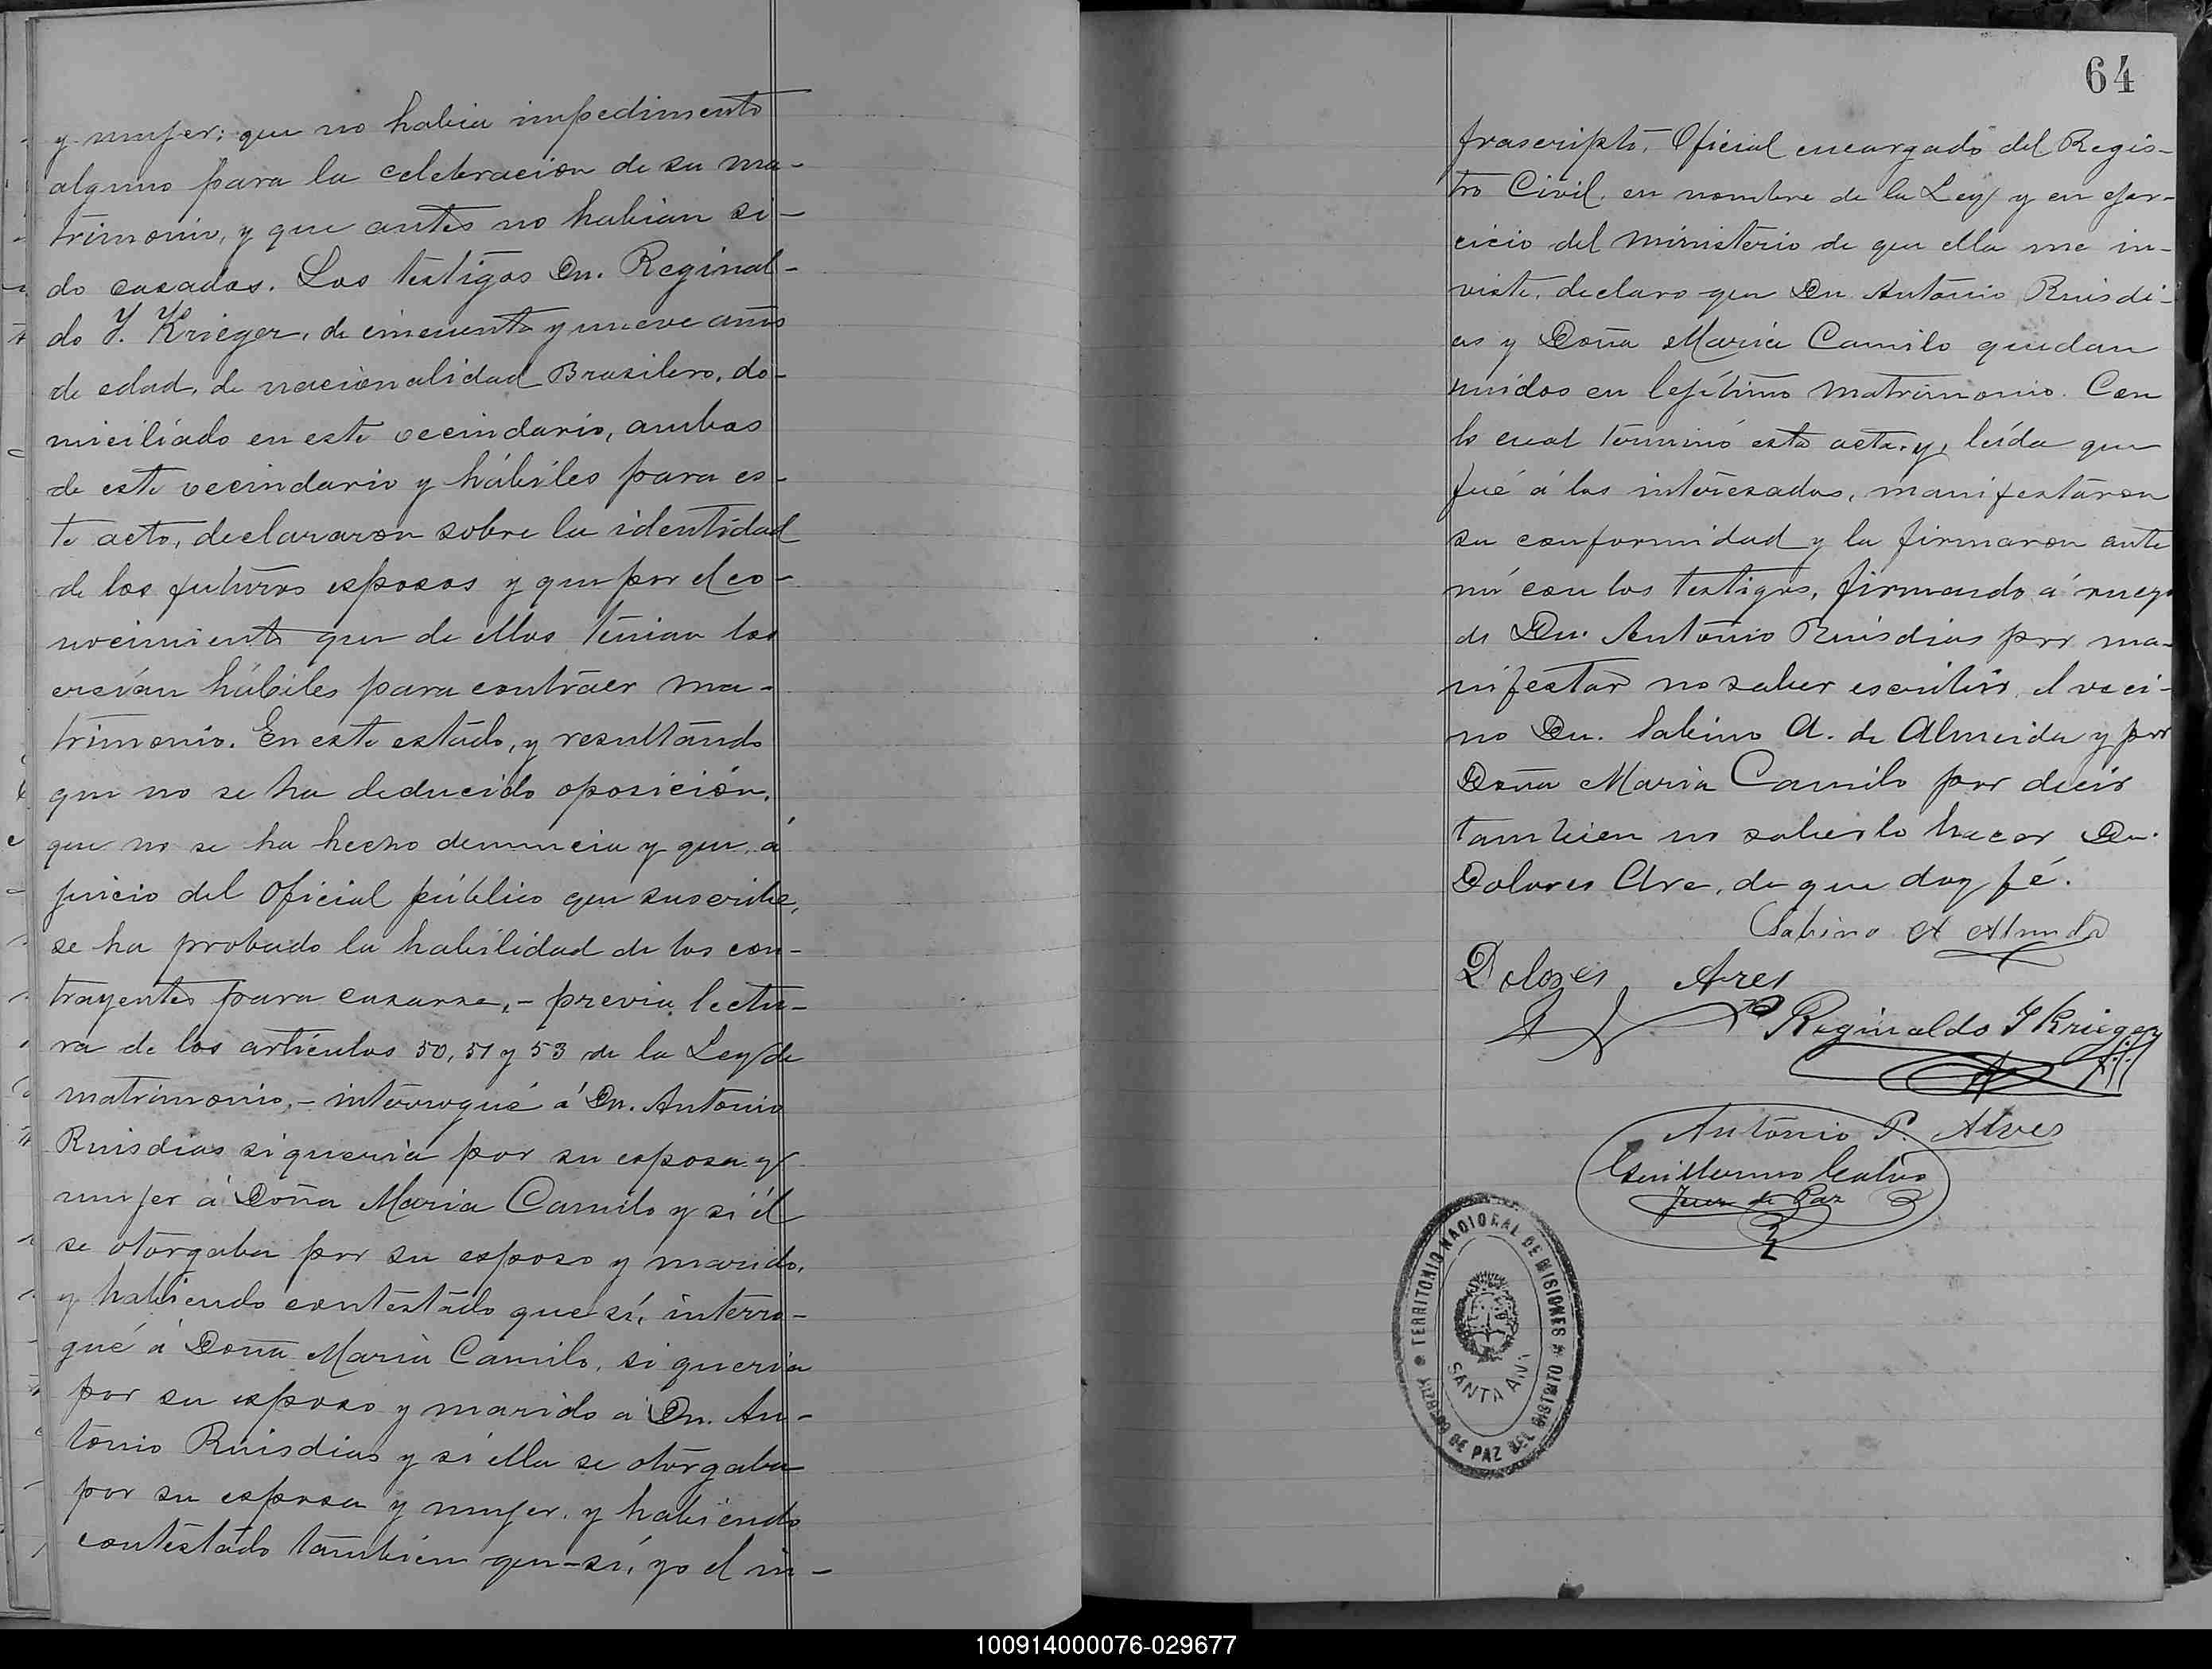 y mujer; que no habia impedimento
alguno para la celebracion de su ma-
trimonio, y que antes no habian si-
do casados. Los testigos Dn. Reginal-
do Y. Krieger, de cincuenta y nueve años
de edad, de nacionalidad Brasilero, do-
miciliado en este vecindario, ambos
de este vecindario y hábiles para es-
te acto, declararon sobre la identidad
de los futuros esposos y que por el co-
nocimiento que de ellos tenian los
creían hábiles para contraer ma-
trimonio. En este estado, y resultando
que no se ha deducido oposición,
que no se ha hecho denuncia y que, á
juicio del Oficial público que suscribe,
se ha probado la habilidad de los con-
trayentes para casarse, - previa lectu-
ra de los artículos 50, 51 y 53 de la Ley de
matrimonio, - interrogué á Dn. Antonio
Ruisdias si queria por su esposa y
mujer á Doña Maria Camilo y si él
se otorgaba por su esposo y marido,
y habiendo contestado que sí, interro-
gué á Doña Maria Camilo, si queria
por su esposo y marido a Dn. An-
tonio Ruisdias y si ella se otorgaba
por su esposa y mujer, y habiendo
contestado tambien que-sí, yo el in-
64
frascripto, Oficial encargado del Regis-
tro Civil, en nombre de la Ley y en ejer-
cicio del ministerio de que ella me in-
viste, declaro que Dn Antonio Ruisdi-
as y Doña Maria Camilo quedan
unidos en lejítimo matrimonio. Con
lo cual terminó esta acta, y, leída que
fué á los interesados, manifestaron
su conformidad y la firmaron ante
mí con los testigos, firmando á ruego
de Dn. Antonio Ruisdias por ma-
nifestar no saber escribir, el veci-
no Dn. Sabino A. de Almeida y por
Doña Maria Camilo por decir
tambien no saberlo hacer Dn.
Dolores Are, de que doy fé.
Sabino A Almeda
Dolores Ares
Reginaldo Y Krieger
Antonio P. Alves
Guillermo
Juez de Paz
TERRITORIO NACIONAL DE MISIONES
JUZGADO DE PAZ DEL DISTRITO
SANTA ANA
100914000076-029677